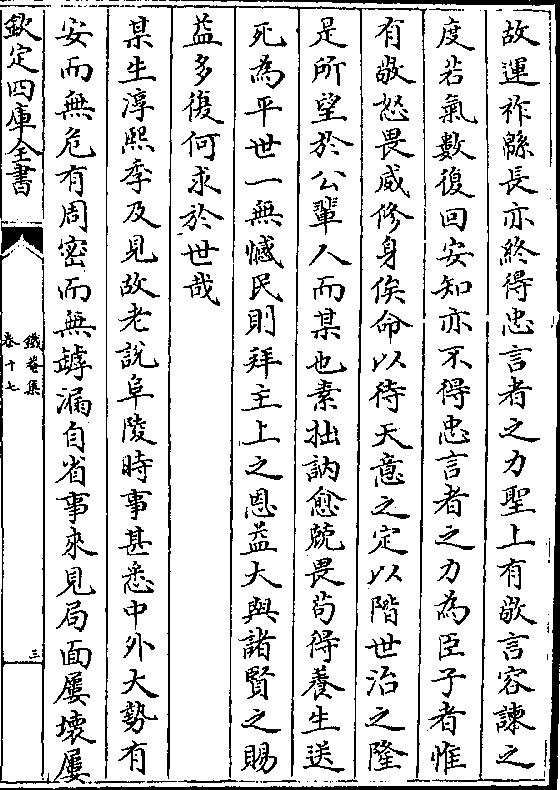 故運祚緜長亦終得忠言者之力聖上有敬言容諫之
度若氣數復回安知亦不得忠言者之力為臣子者惟
有敬怒畏威修身俟命以待天意之定以階世治之隆
是所望於公輩人而某也素拙訥愈兢畏苟得養生送
死為平世一無憾民則拜主上之恩益大與諸賢之賜
益多復何求於世哉
某生淳熙季及見故老說阜陵時事甚悉中外大勢有
安而無危有周密而無罅漏自省事來見局面屢壞屢
欽定四庫全書
鐵菴集
卷十七
三